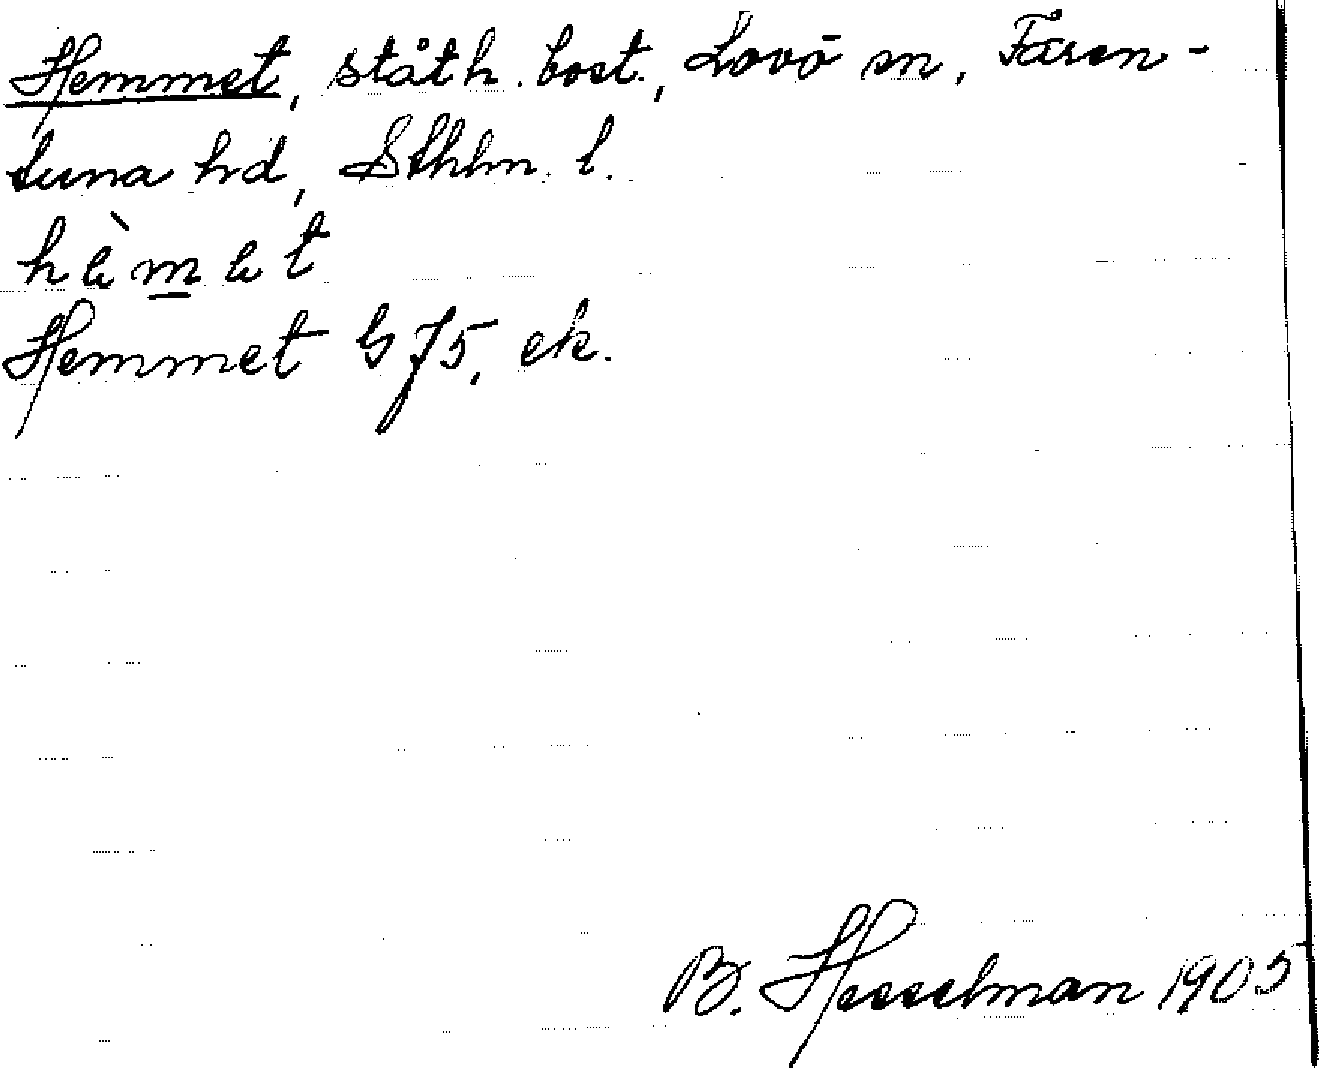 Hemmet, ståth. bost., Lovö sn, Færen-
tuna hd, Sthlm. l.
hèmet
Hemmet G J5, ek.
B. Hesselman 1905